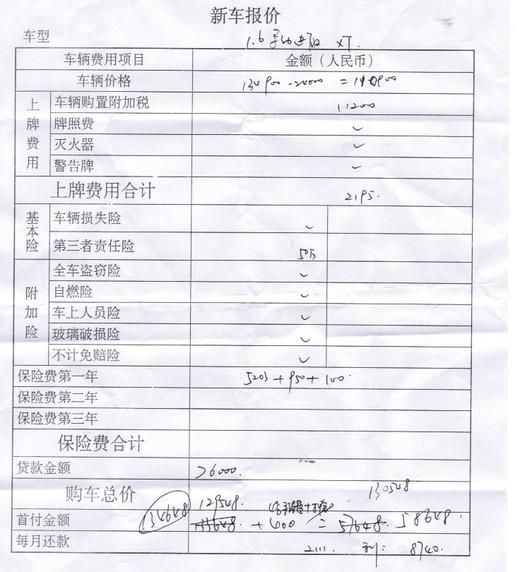 新车报价
车型 1.6 手动进取 XT
车辆费用项目 金额（人民币）
车辆价格 134900-24000 =110900
上牌费用
车辆购置附加税 11200
牌照费 ✓
灭火器 ✓
警告牌 ✓
上牌费用合计 2195.
基本险
车辆损失险 ✓
第三者责任险 50万
附加险
全车盗窃险 ✓
自燃险 ✓
车上人员险 ✓
玻璃破损险 ✓
不计免赔险 ✓
保险费第一年 5203+950+100.
保险费第二年
保险费第三年
保险费合计
贷款金额 76000.
购车总价 129548. 130548
首付金额 134648 +600 = 57648. 58648
每月还款 2111. 利: 8740.